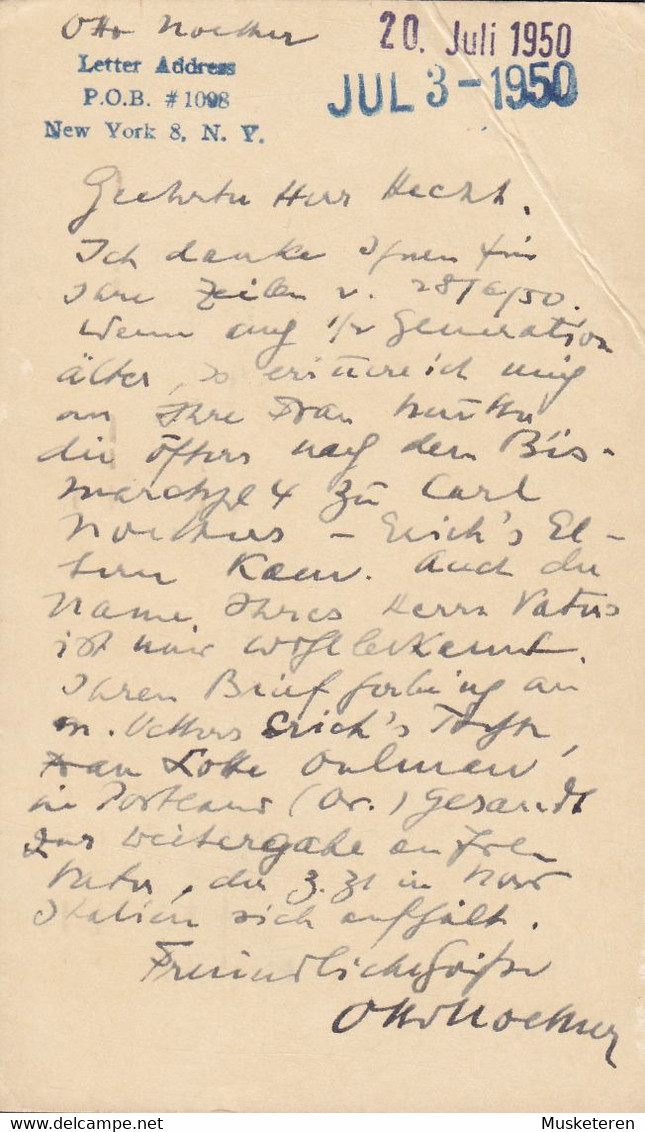 Otto Noether
20. Juli 1950
Letter Address
P.O.B. #1098
New York 8, N. Y.
JUL 3-1950
Geehrter Herr Hecht.
Ich danke Ihnen für
Ihre Zeilen v. 28/6/50.
Wenn auch 1/2 Generation
älter, so erinnere ich mich
an Ihre Frau Mutter
die öfters nach dem Bis-
marckpl 4 zu Carl
Noethers – Erich's El-
tern kam. Auch der
Name Ihres Herrn Vaters
ist mir wohlbekannt.
Ihren Brief habe ich an
m. Vetters Erich's Tochter,
Frau Lotte Oulman
in Portland (Or.) gesandt
zur Weitergabe an Ihren
Vater, der z. Zt in Nord
Italien sich aufhält.
Freundliche Grüße
Otto Noether
Musketeren
delcampe.net